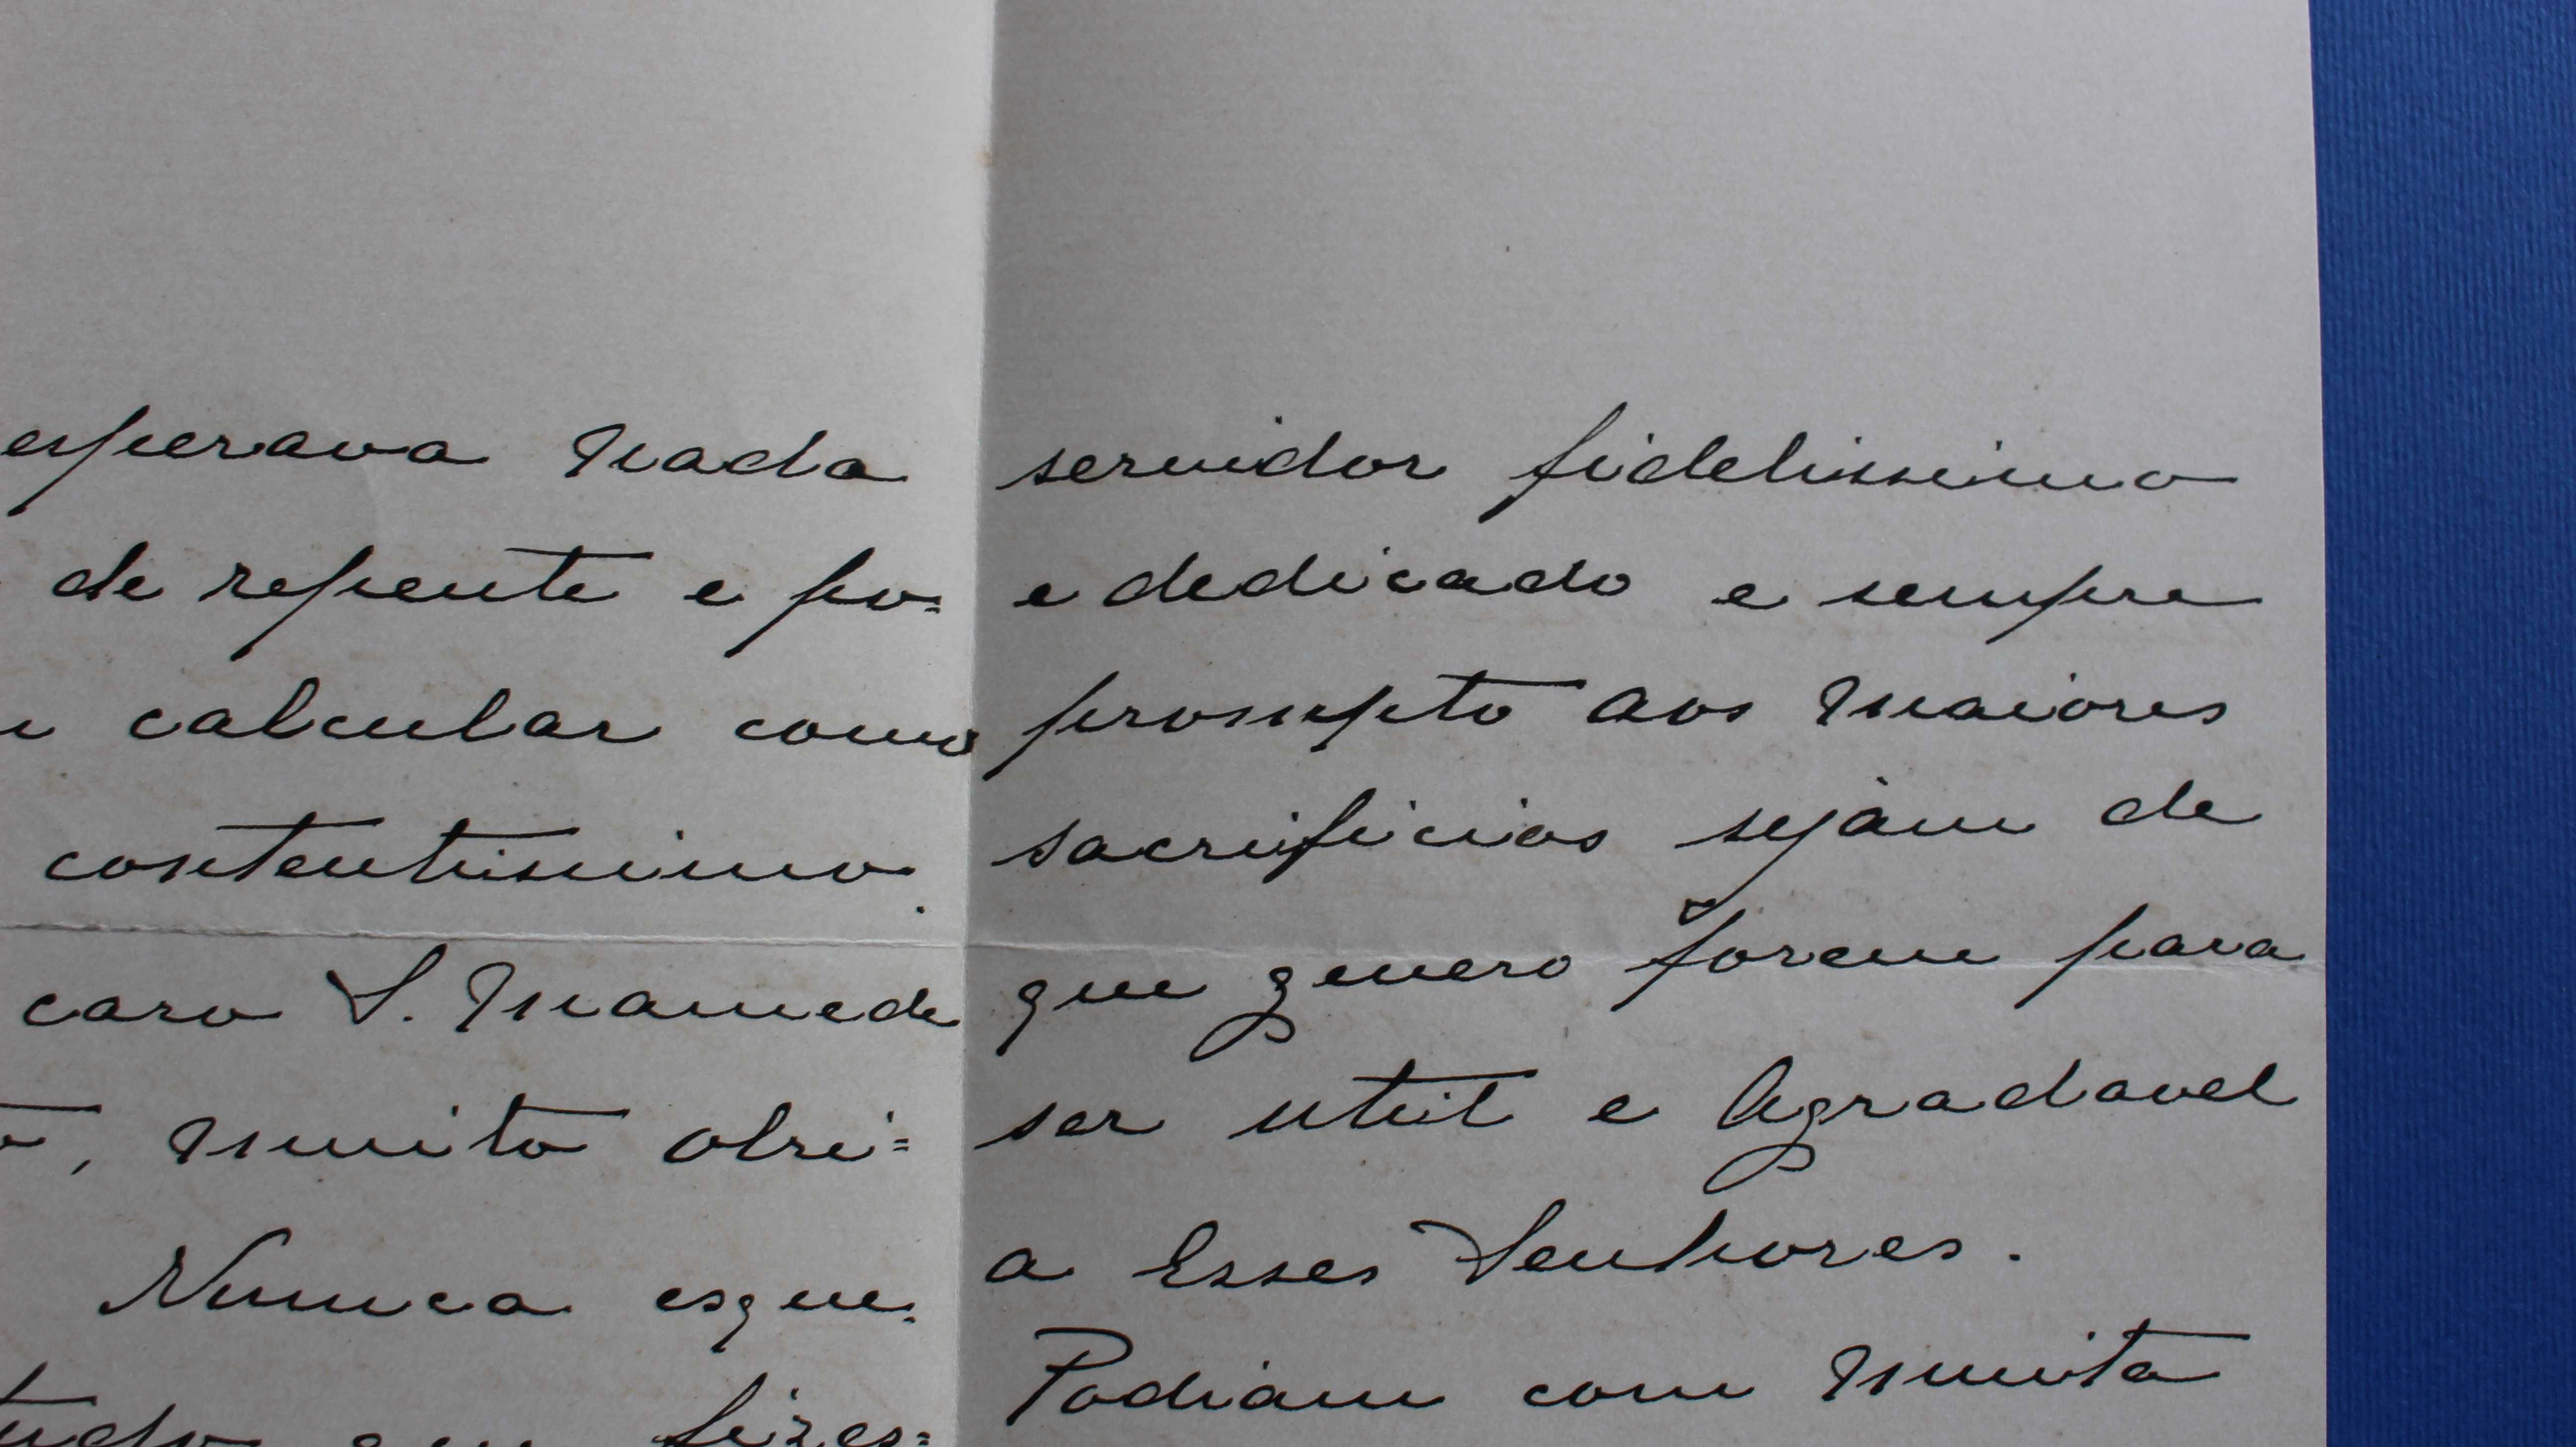 esperava nada
de repente e po=
calcular como
contentissimo.
caro S. Mamede
, muito obri=
Nunca esque=
tudo que fizes=
servidor fidelissimo
e dedicado e sempre
prompto aos maiores
sacrificios sejam de
que genero forem para
ser util e agradavel
a Esses Senhores.
Podiam com muita